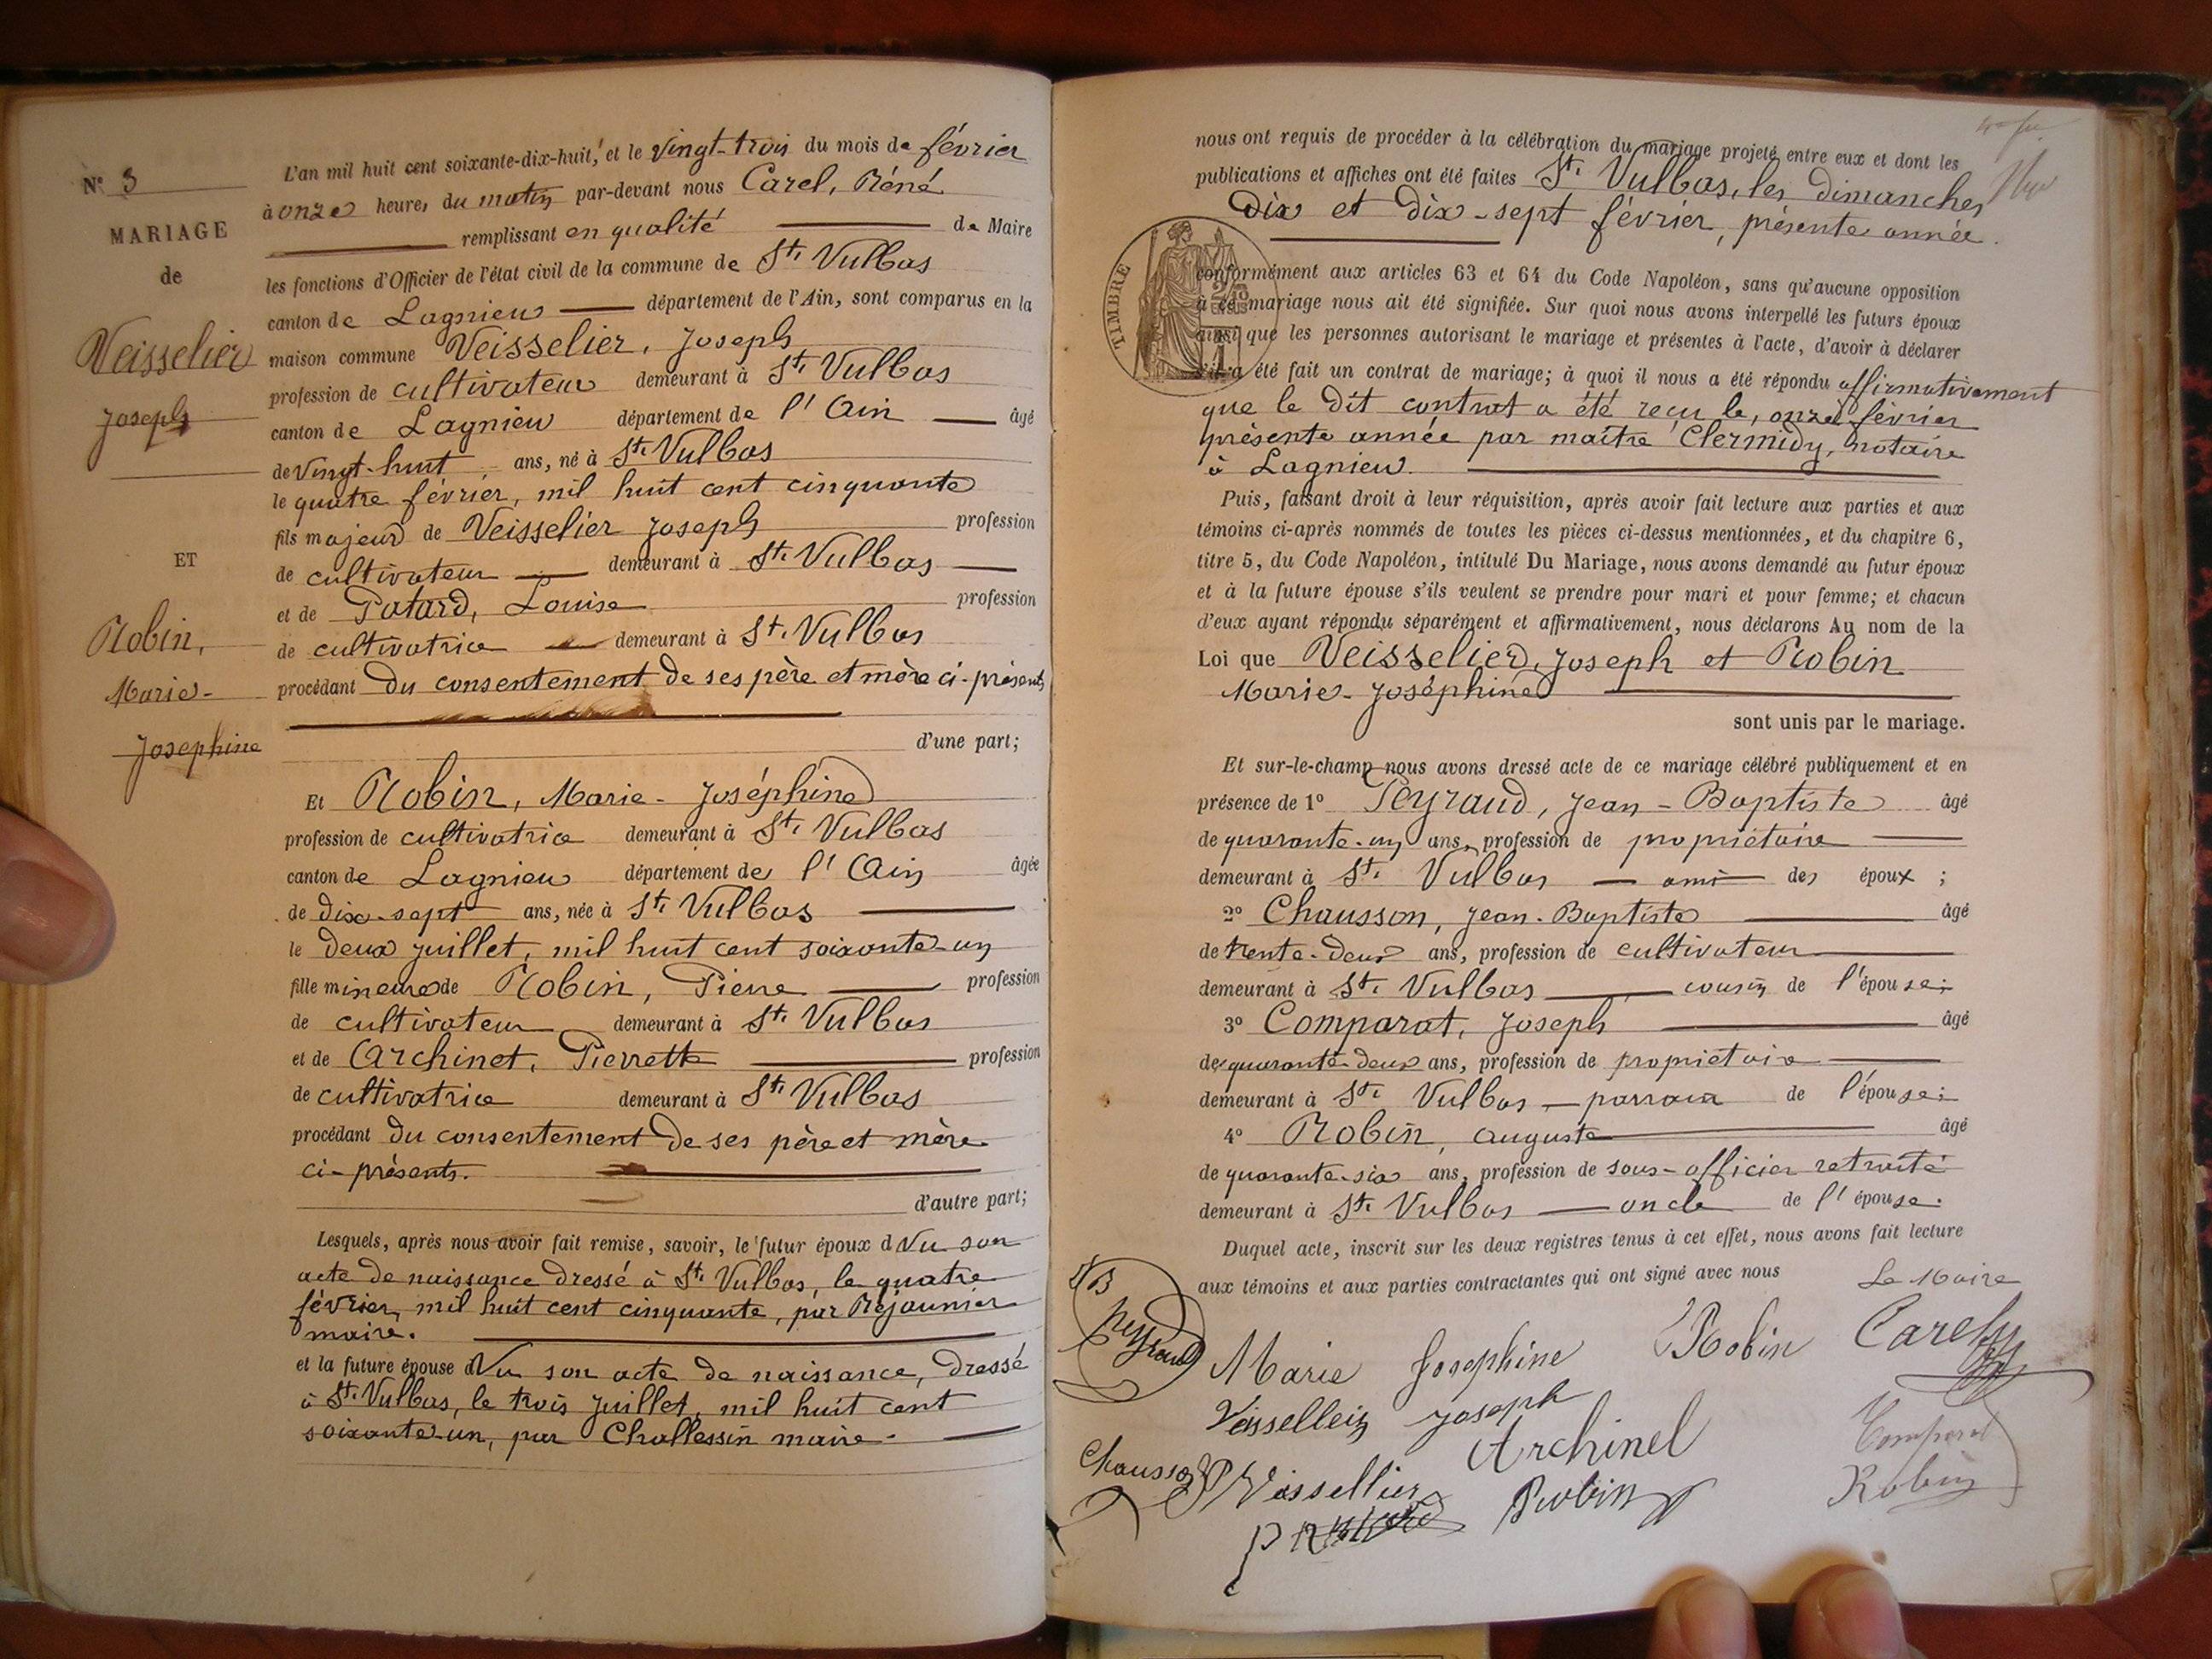 N° 3
MARIAGE
de
Veisselier
Joseph
ET
Robin,
Marie-
Josephine
L'an mil huit cent soixante-dix-huit, et le vingt-trois du mois de février
à onze heures du matin par-devant nous Carel, Réné
remplissant en qualité de Maire
les fonctions d'Officier de l'état civil de la commune de St. Vulbas
canton de Lagnieu département de l'Ain, sont comparus en la
maison commune Veisselier, Joseph
profession de cultivateur demeurant à St. Vulbas
canton de Lagnieu département de l'Ain âgé
de vingt-huit ans, né à St. Vulbas
le quatre février, mil huit cent cinquante
fils majeur de Veisselier Joseph profession
de cultivateur demeurant à St. Vulbas
et de Patard, Louise profession
de cultivatrice demeurant à St. Vulbas
procédant du consentement de ses père et mère ci-présents
d'une part;
Et Robin, Marie-Joséphine
profession de cultivatrice demeurant à St. Vulbas
canton de Lagnieu département de l'Ain âgée
de dix-sept ans, née à St. Vulbas
le deux juillet, mil huit cent soixante-un
fille mineure de Robin, Pierre profession
de cultivateur demeurant à St. Vulbas
et de Archinet, Pierrette profession
de cultivatrice demeurant à St. Vulbas
procédant du consentement de ses père et mère
ci-présents.
d'autre part;
Lesquels, après nous avoir fait remise, savoir, le futur époux d Vu son
acte de naissance dressé à St. Vulbas, le quatre
février, mil huit cent cinquante, par Réjaunier
maire.
et la future épouse d Vu son acte de naissance, dressé
à St. Vulbas, le trois juillet, mil huit cent
soixante-un, par Challessin maire.
nous ont requis de procéder à la célébration du mariage projeté entre eux et dont les
publications et affiches ont été faites St. Vulbas, les dimanches
dix et dix-sept février, présente année.
TIMBRE
conformément aux articles 63 et 64 du Code Napoléon, sans qu'aucune opposition
à ce mariage nous ait été signifiée. Sur quoi nous avons interpellé les futurs époux
ainsi que les personnes autorisant le mariage et présentes à l'acte, d'avoir à déclarer
s'il a été fait un contrat de mariage; à quoi il nous a été répondu affirmativement
que le dit contrat a été reçu le, onze février
présente année par maître Clermidy, notaire
à Lagnieu.
Puis, faisant droit à leur réquisition, après avoir fait lecture aux parties et aux
témoins ci-après nommés de toutes les pièces ci-dessus mentionnées, et du chapitre 6,
titre 5, du Code Napoléon, intitulé Du Mariage, nous avons demandé au futur époux
et à la future épouse s'ils veulent se prendre pour mari et pour femme; et chacun
d'eux ayant répondu séparément et affirmativement, nous déclarons Au nom de la
Loi que Veisselier, Joseph et Robin
Marie-Joséphine
sont unis par le mariage.
Et sur-le-champ nous avons dressé acte de ce mariage célébré publiquement et en
présence de 1° Peyraud, Jean-Baptiste âgé
de quarante-un ans, profession de propriétaire
demeurant à St. Vulbas ami des époux ;
2° Chausson, Jean-Baptiste âgé
de trente-deux ans, profession de cultivateur
demeurant à St. Vulbas cousin de l'épouse;
3° Comparat, Joseph âgé
de quarante-deux ans, profession de propriétaire
demeurant à St. Vulbas parrain de l'épouse;
4° Robin, Auguste âgé
de quarante-six ans, profession de sous-officier retraité
demeurant à St. Vulbas oncle de l'épouse.
Duquel acte, inscrit sur les deux registres tenus à cet effet, nous avons fait lecture
aux témoins et aux parties contractantes qui ont signé avec nous
Le Maire
JB Peyraud
Marie Josephine Robin Carel
Veisselleir Joseph
Archinel
Comparat
Chausson
P Veissellier
Robin
Robin